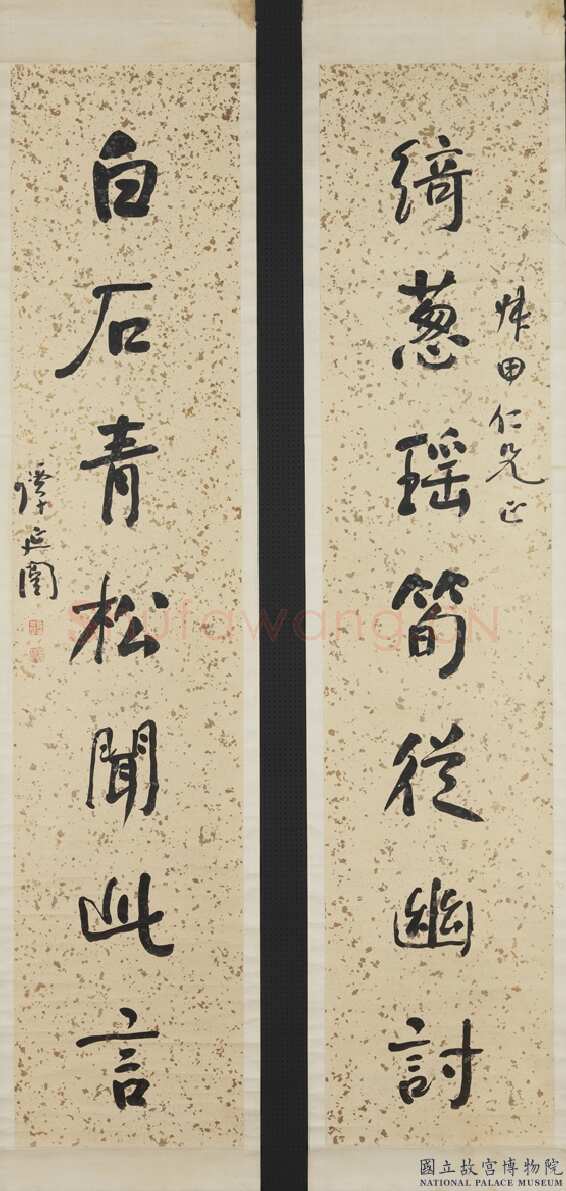 田仁兄正
綺葱瑶筍從幽討
白石青松聞此言
譚延闓
shufawang.CN
國立故宮博物院
NATIONAL PALACE MUSEUM